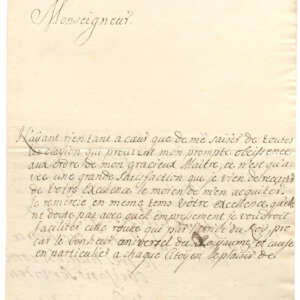 Monseigneur
N'ayant rien tant a cœur que de me saisir de toutes
les ocasion qui prouvent mon prompte obeissence
aux Ordre de mon gracieux Maitre, ce n'est qu'an
vec une grande Satisfaction que je vien de
de Votre Excelence le moien de m'en acquiter.
Je remercie en meme tems Votre Excellence, qu'elle
ne doute pas avec quel impressement je voudroit
faciliter cette route qui par l'
car le bonheur universel du Royaume, et cause
en particulier a chaque Citoyen le plaisir de